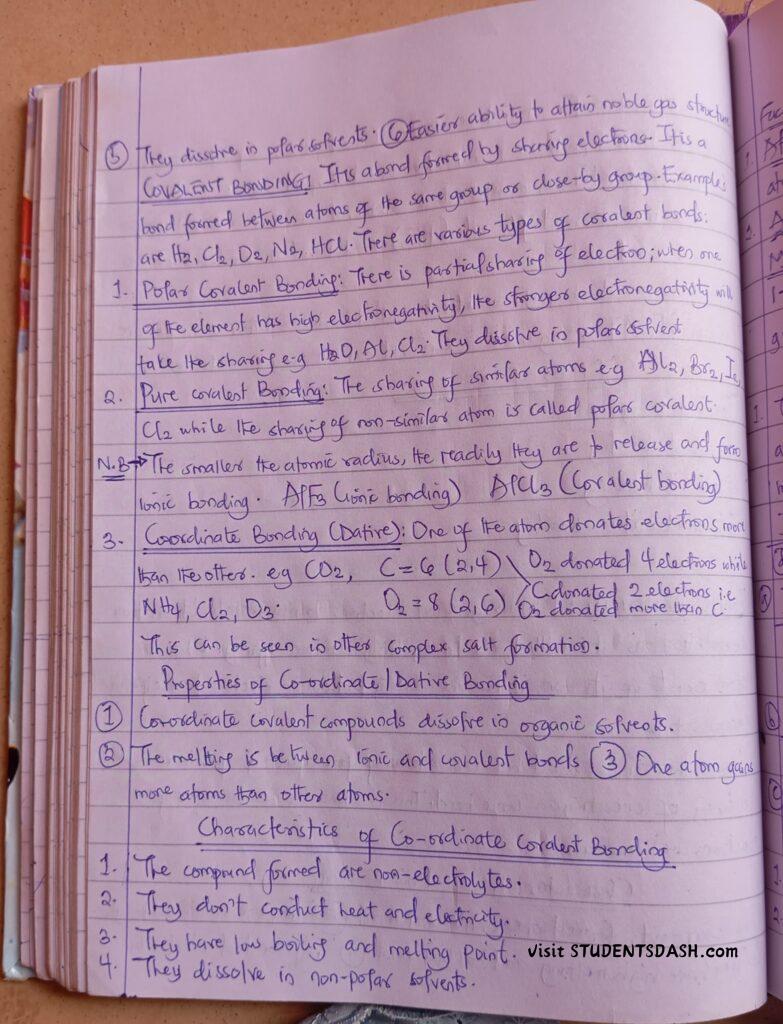 ⑤ They dissolve in polar solvents. ⑥ Easier ability to attain noble gas structure
COVALENT BONDING: It is a bond formed by sharing electrons. It is a
bond formed between atoms of the same group or close-by group. Examples
are H2, Cl2, O2, N2, HCl. There are various types of covalent bonds:
1. Polar Covalent Bonding: There is partial sharing of electron; when one
of the element has high electronegativity, the stronger electronegativity will
take the sharing e.g H2O, Al, Cl2. They dissolve in polar solvent
2. Pure covalent Bonding: The sharing of similar atoms e.g Al2, Br2, I2,
Cl2 while the sharing of non-similar atom is called polar covalent.
N.B→ The smaller the atomic radius, the readily they are to release and form
Ionic bonding. AlF3 (ionic bonding) AlCl3 (Covalent bonding)
3. Coordinate Bonding (Dative): One of the atom donates electrons more
than the other. eg CO2, C = 6 (2,4) \ O2 donated 4 electrons while
NH4, Cl2, O3. O2 = 8 (2,6) / C donated 2 electrons i.e
O2 donated more than C.
This can be seen in other complex salt formation.
Properties of Co-ordinate / Dative Bonding
① Co-ordinate covalent compounds dissolve in organic solvents.
② The melting is between ionic and covalent bonds ③ One atom gains
more atoms than other atoms.
Characteristics of Co-ordinate Covalent Bonding
1. The compound formed are non-electrolytes.
2. They don't conduct heat and electricity.
3. They have low boiling and melting point.
Visit STUDENTSDASH.com
4. They dissolve in non-polar solvents.